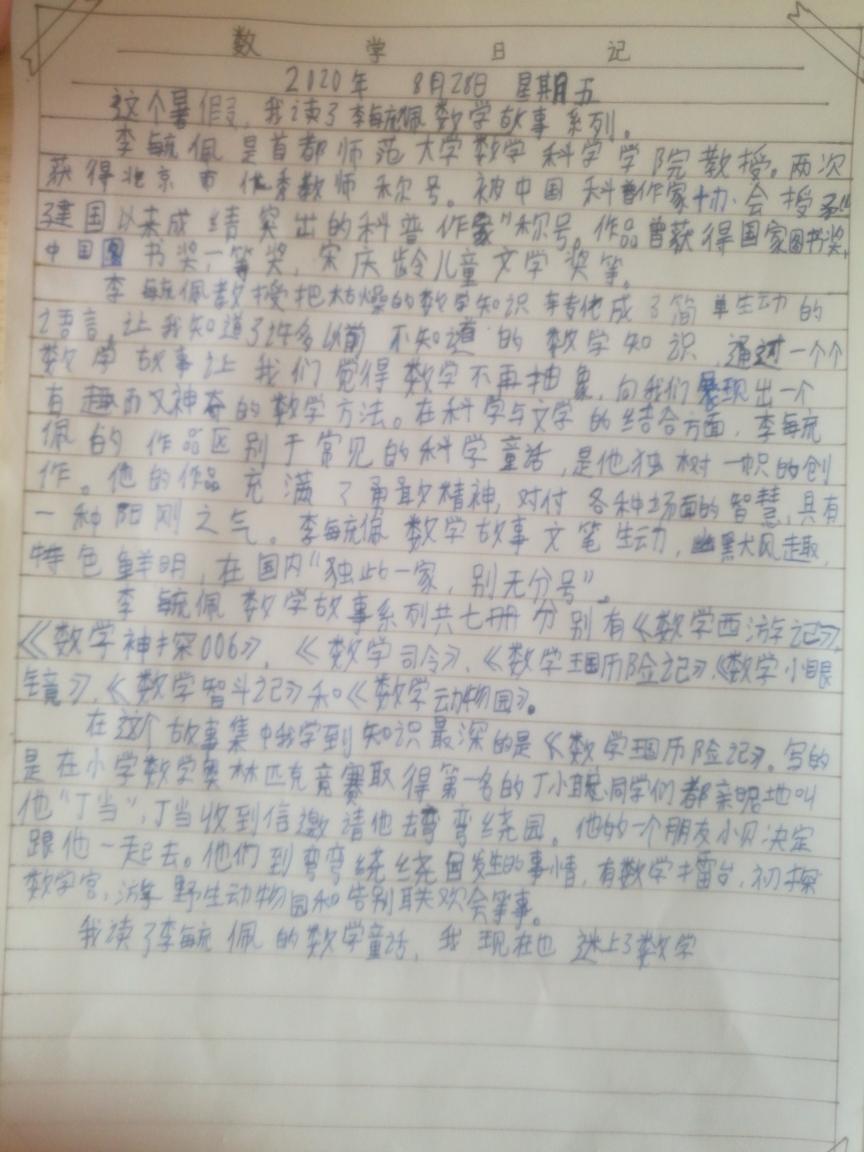 数学日记
2020年 8月28日 星期五
这个暑假,我读了李毓佩数学故事系列。
李毓佩是首都师范大学数学科学学院教授。两次
获得北京市优秀教师称号。被中国科普作家协会授予"
建国以来成绩突出的科普作家"称号。作品曾获得国家图书奖,
中国图书奖一等奖,宋庆龄儿童文学奖等。
李毓佩教授把枯燥的数学知识转化成了简单生动的
语言,让我知道了许多以前不知道的数学知识,通过一个个
数学故事让我们觉得数学不再抽象,向我们展现出一个
有趣而又神奇的数学方法。在科学与文学的结合方面,李毓
佩的作品区别于常见的科学童话,是他独树一帜的创
作。他的作品充满了勇敢精神,对付各种场面的智慧,具有
一种阳刚之气。李毓佩数学故事文笔生动,幽默风趣,
特色鲜明,在国内"独此一家,别无分号"。
李毓佩数学故事系列共七册分别有《数学西游记》,
《数学神探006》,《数学司令》,《数学王国历险记》,《数学小眼
镜》,《数学智斗记》和《数学动物园》。
在这个故事集中我学到知识最深的是《数学王国历险记》。写的
是在小学数学奥林匹克竞赛取得第一名的丁小聪,同学们都亲昵地叫
他"丁当",丁当收到信邀请他去弯弯绕国。他的一个朋友小贝决定
跟他一起去。他们到弯弯绕绕国发生的事情,有数学擂台,初探
数学宫,游野生动物园和告别联欢会等事。
我读了李毓佩的数学童话,我现在也迷上了数学